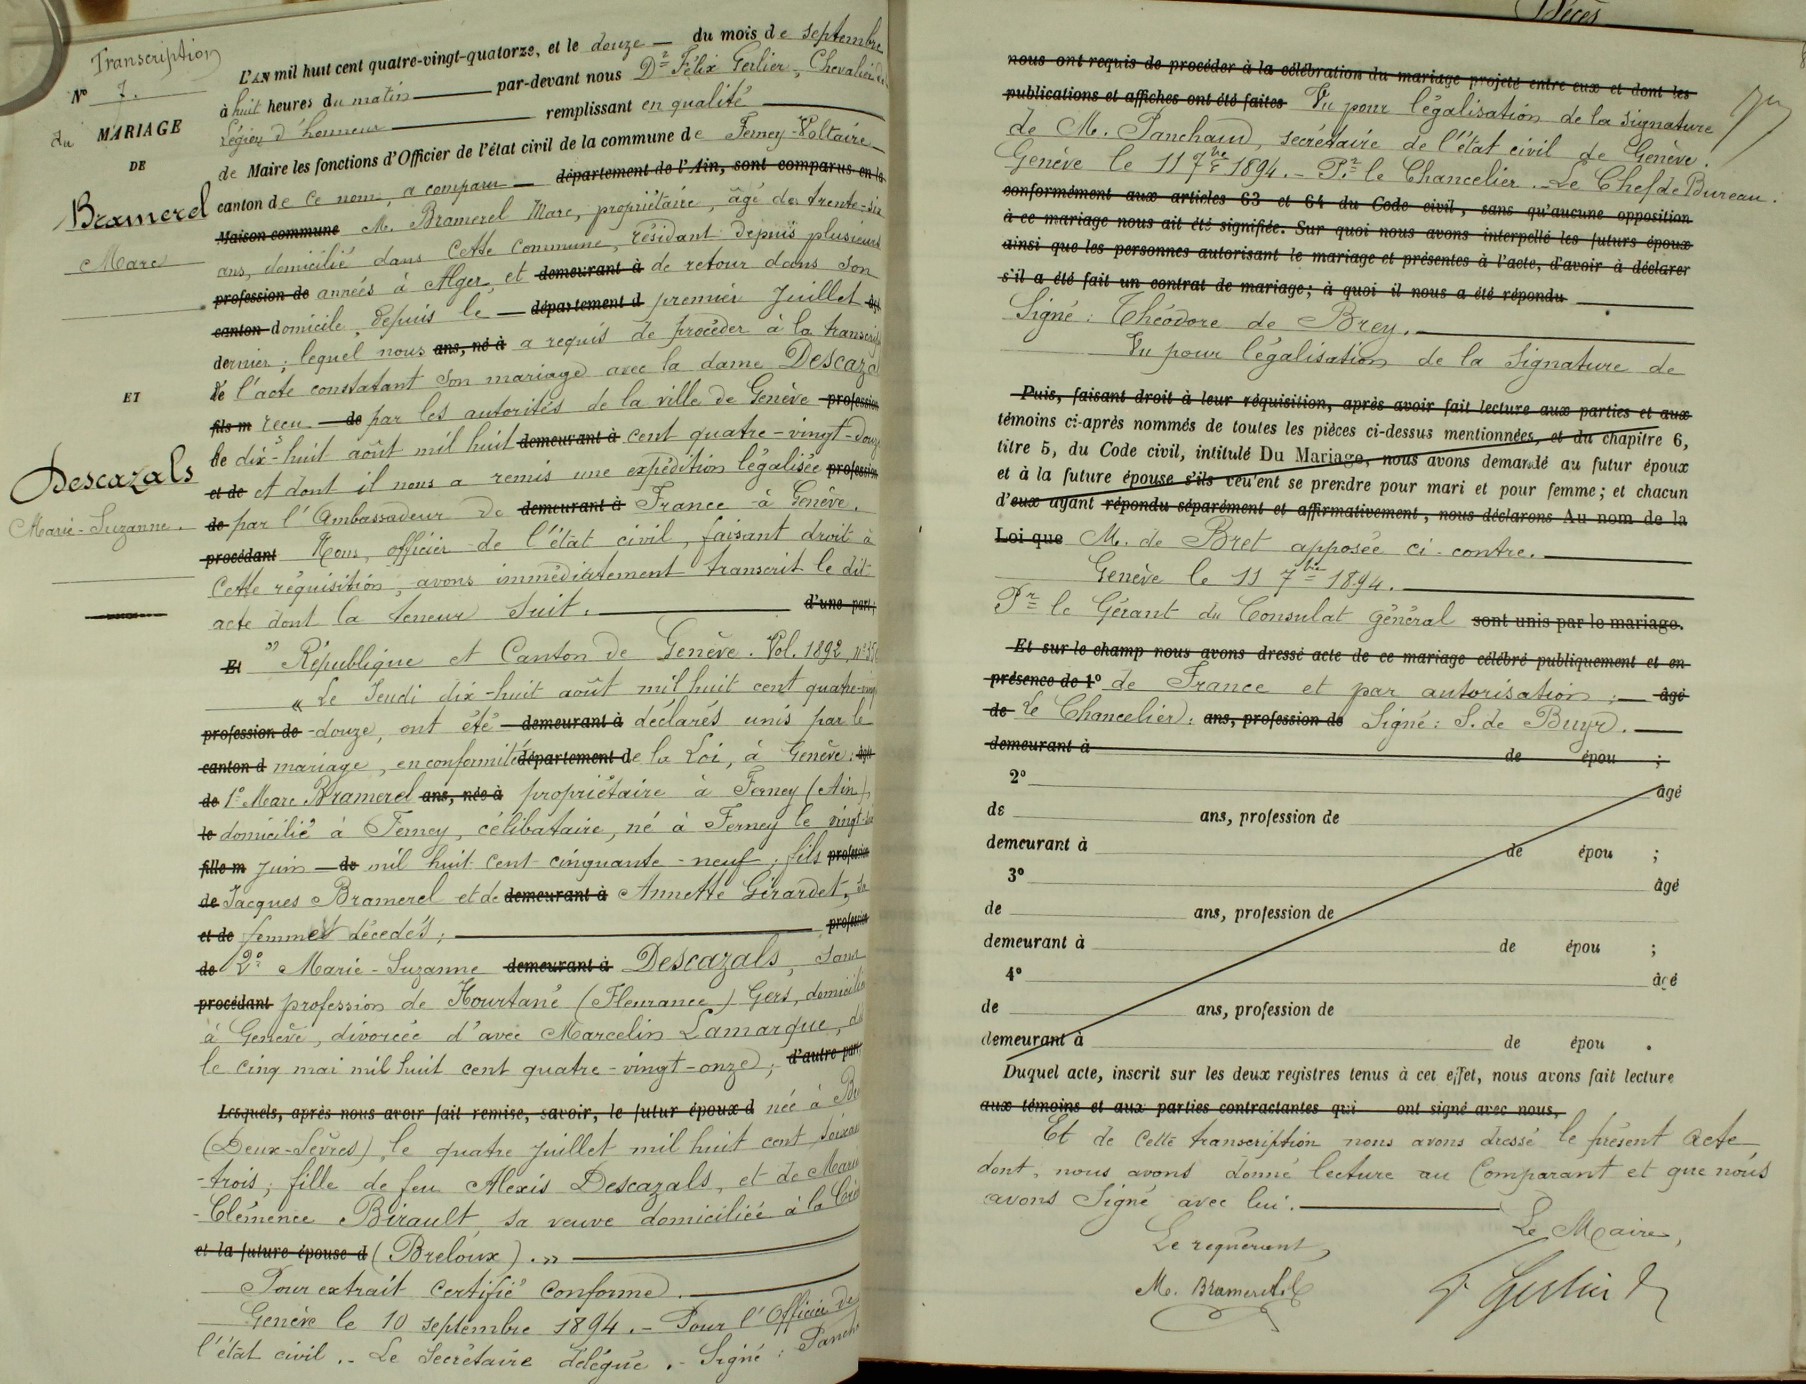 Transcription
N° 7.
du MARIAGE
DE
Bramerel
Marc
ET
Descazals
Marie-Suzanne.
L'AN mil huit cent quatre-vingt-quatorze, et le douze du mois de septembre
à huit heures du matin par-devant nous Dr Félix Gerlier, Chevalier de
Légion d'honneur remplissant en qualité
de Maire les fonctions d'Officier de l'état civil de la commune de Ferney-Voltaire
canton de ce nom, a comparu département de l'Ain, sont comparus en la
Maison commune M. Bramerel Marc, propriétaire, âgé de trente-six
ans, domicilié dans cette commune, résidant depuis plusieurs
profession de années à Alger, et demeurant à de retour dans son
canton domicile, depuis le département d premier Juillet
dernier; lequel nous ans, né à a requis de procéder à la
de l'acte constatant son mariage avec la dame
fils m recu de par les autorités de la ville de Genève profession
le dix-huit août mil huit demeurant à cent quatre-vingt-douze
et de et dont il nous a remis une expédition légalisée profession
de par l'Ambassadeur de demeurant à France à Genève.
procédant Nous, officier de l'état civil, faisant droit à
cette réquisition, avons immédiatement transcrit le dit
acte dont la teneur suit. d'une part;
Et " République et Canton de Genève. Vol. 1892, n°
« Le Jeudi dix-huit août mil huit cent quatre-vingt
profession de -douze, ont été demeurant à déclarés unis par le
canton d mariage, en conformité département de la Loi, à Genève:
de 1° Marc Bramerel ans, née à propriétaire à Ferney (Ain),
le domicilié à Ferney, célibataire, né à Ferney le
fille m juin de mil huit cent cinquante-neuf; fils profession
de Jacques Bramerel et de demeurant à Annette Girardet, sa
et de femme décédés; profession
de 2° Marie-Suzanne demeurant à Descazals, sans
procédant profession de (Fleurance) Gers, domiciliée
à Genève, divorcée d'avec Marcelin Lamarque,
le cinq mai mil huit cent quatre-vingt-onze; d'autre part
Lesquels, après nous avoir fait remise, savoir, le futur époux d née à
(Deux-Sèvres), le quatre juillet mil huit cent
-trois; fille de feu Alexis Descazals, et de Marie
-Clémence Birault, sa veuve domiciliée à la
et la future épouse d (Breloux). »
Pour extrait certifié conforme.
Genève le 10 septembre 1894. - Pour l'Officier de
l'état civil. - Le Secrétaire délégué. - Signé:
Décès
nous ont requis de procéder à la célébration du mariage projeté entre eux et dont les
publications et affiches ont été faites Vu pour légalisation de la signature
de M. Panchaud, secrétaire de l'état civil de Genève.
Genève le 11 7bre 1894. - Pr le Chancelier. - Le Chef de Bureau.
conformément aux articles 63 et 64 du Code civil, sans qu'aucune opposition
à ce mariage nous ait été signifiée. Sur quoi nous avons interpellé les futurs époux
ainsi que les personnes autorisant le mariage et présentes à l'acte, d'avoir à déclarer
s'il a été fait un contrat de mariage; à quoi il nous a été répondu
Signé: Théodore de Brey.
Vu pour légalisation de la signature de
Puis, faisant droit à leur réquisition, après avoir fait lecture aux parties et aux
témoins ci-après nommés de toutes les pièces ci-dessus mentionnées, et du chapitre 6,
titre 5, du Code civil, intitulé Du Mariage, nous avons demandé au futur époux
et à la future épouse s'ils veulent se prendre pour mari et pour femme; et chacun
d'eux ayant répondu séparément et affirmativement, nous déclarons Au nom de la
Loi que M. de Bret apposée ci-contre.
Genève le 11 7bre 1894.
Pr le Gérant du Consulat général sont unis par le mariage.
Et sur-le-champ nous avons dressé acte de ce mariage célébré publiquement et en
présence de 1° de France et par autorisation; âgé
de Le Chancelier: ans, profession de Signé: S. de Buyr.
demeurant à de épou ;
2° âgé
de ans, profession de
demeurant à de épou ;
3° âgé
de ans, profession de
demeurant à de épou ;
4° âgé
de ans, profession de
demeurant à de épou .
Duquel acte, inscrit sur les deux registres tenus à cet effet, nous avons fait lecture
aux témoins et aux parties contractantes qui ont signé avec nous,
Et de cette transcription nous avons dressé le présent acte
dont, nous avons donné lecture au Comparant et que nous
avons signé avec lui.
Le requérant, Le Maire,
M. Bramerel